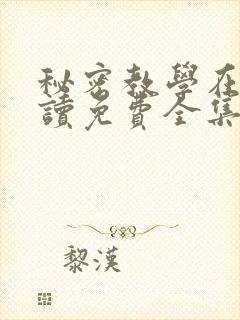 秘密教學在
讀免費全集
黎漢